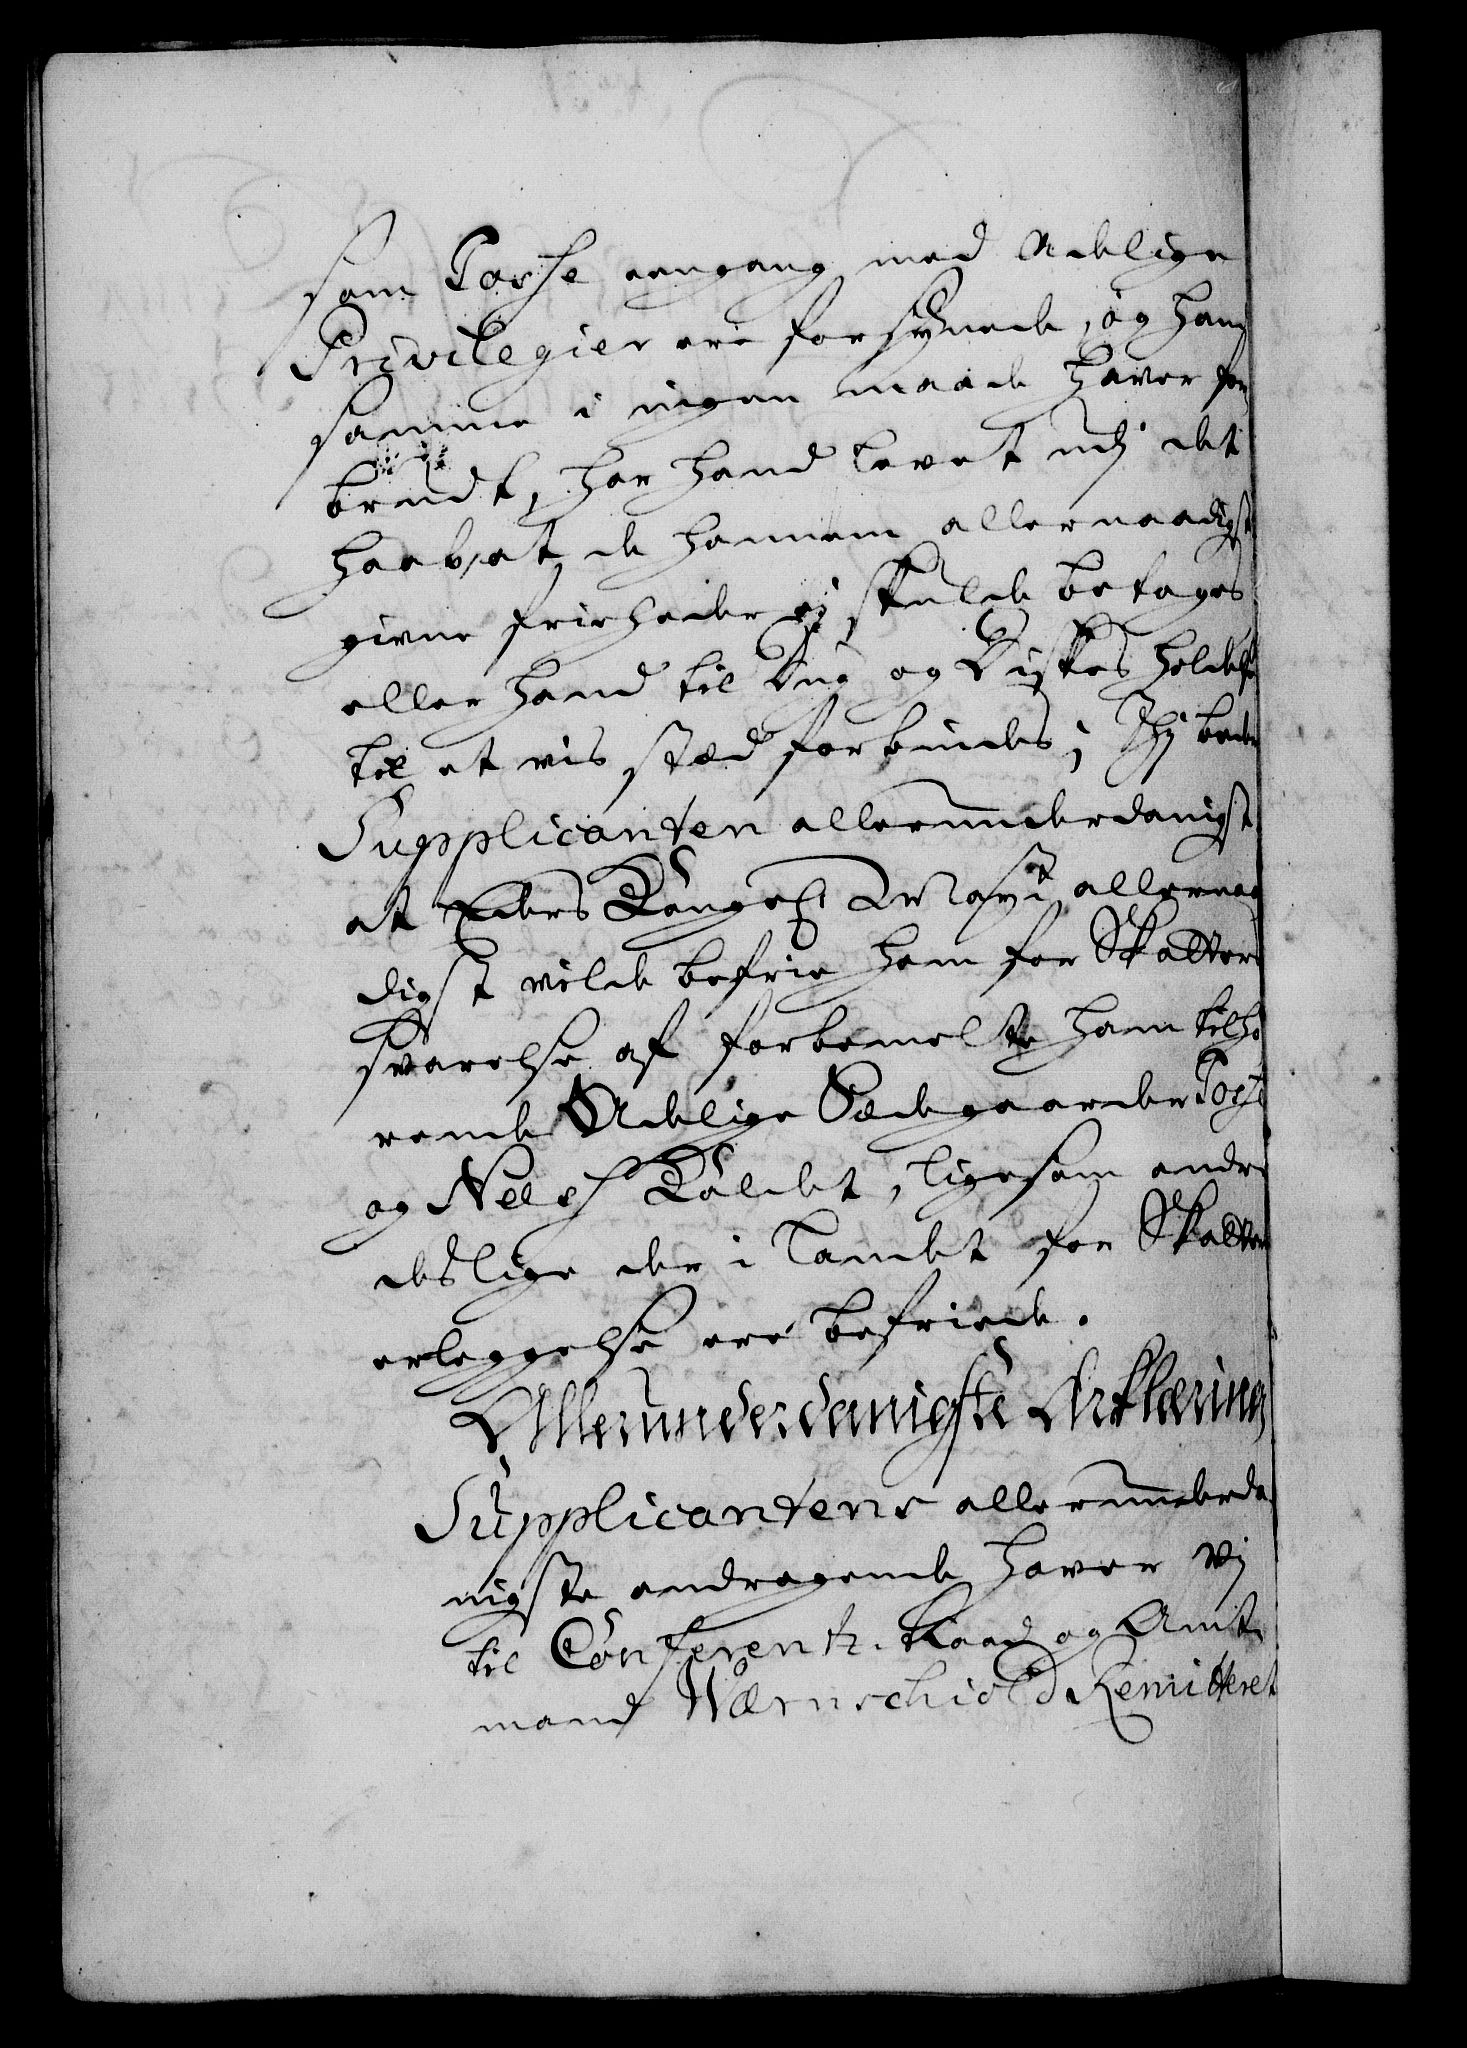 som Torse eengang med Adelige
Privilegier ere forsÿnede, og hand
samme i ingen maade haver for
brudt, har hand levet udj det
haab, at de hannem allernaadigst
givne friiheder ej skulde betages
eller hand til Dug og Diskes holdelse
til et vis stæd forbindes; Thj beder
Supplicanten allerunderdanigst
at Eders Kongel: Mayt allernaa
digst vilde befrie ham for Skatters
svarelse af forbemelte ham tilhø
rende Adelige Sædegaarder Torse
og Nels Kaldet, ligesom andre
deslige der i Landet for Skatters
erleggelse ere befriede.
Allerunderdanigste Erklæring
Supplicantens allerunderda
nigste andragende haver vj
til Conferentz-Raad og Amt
mand Wærnschiold Remitteret